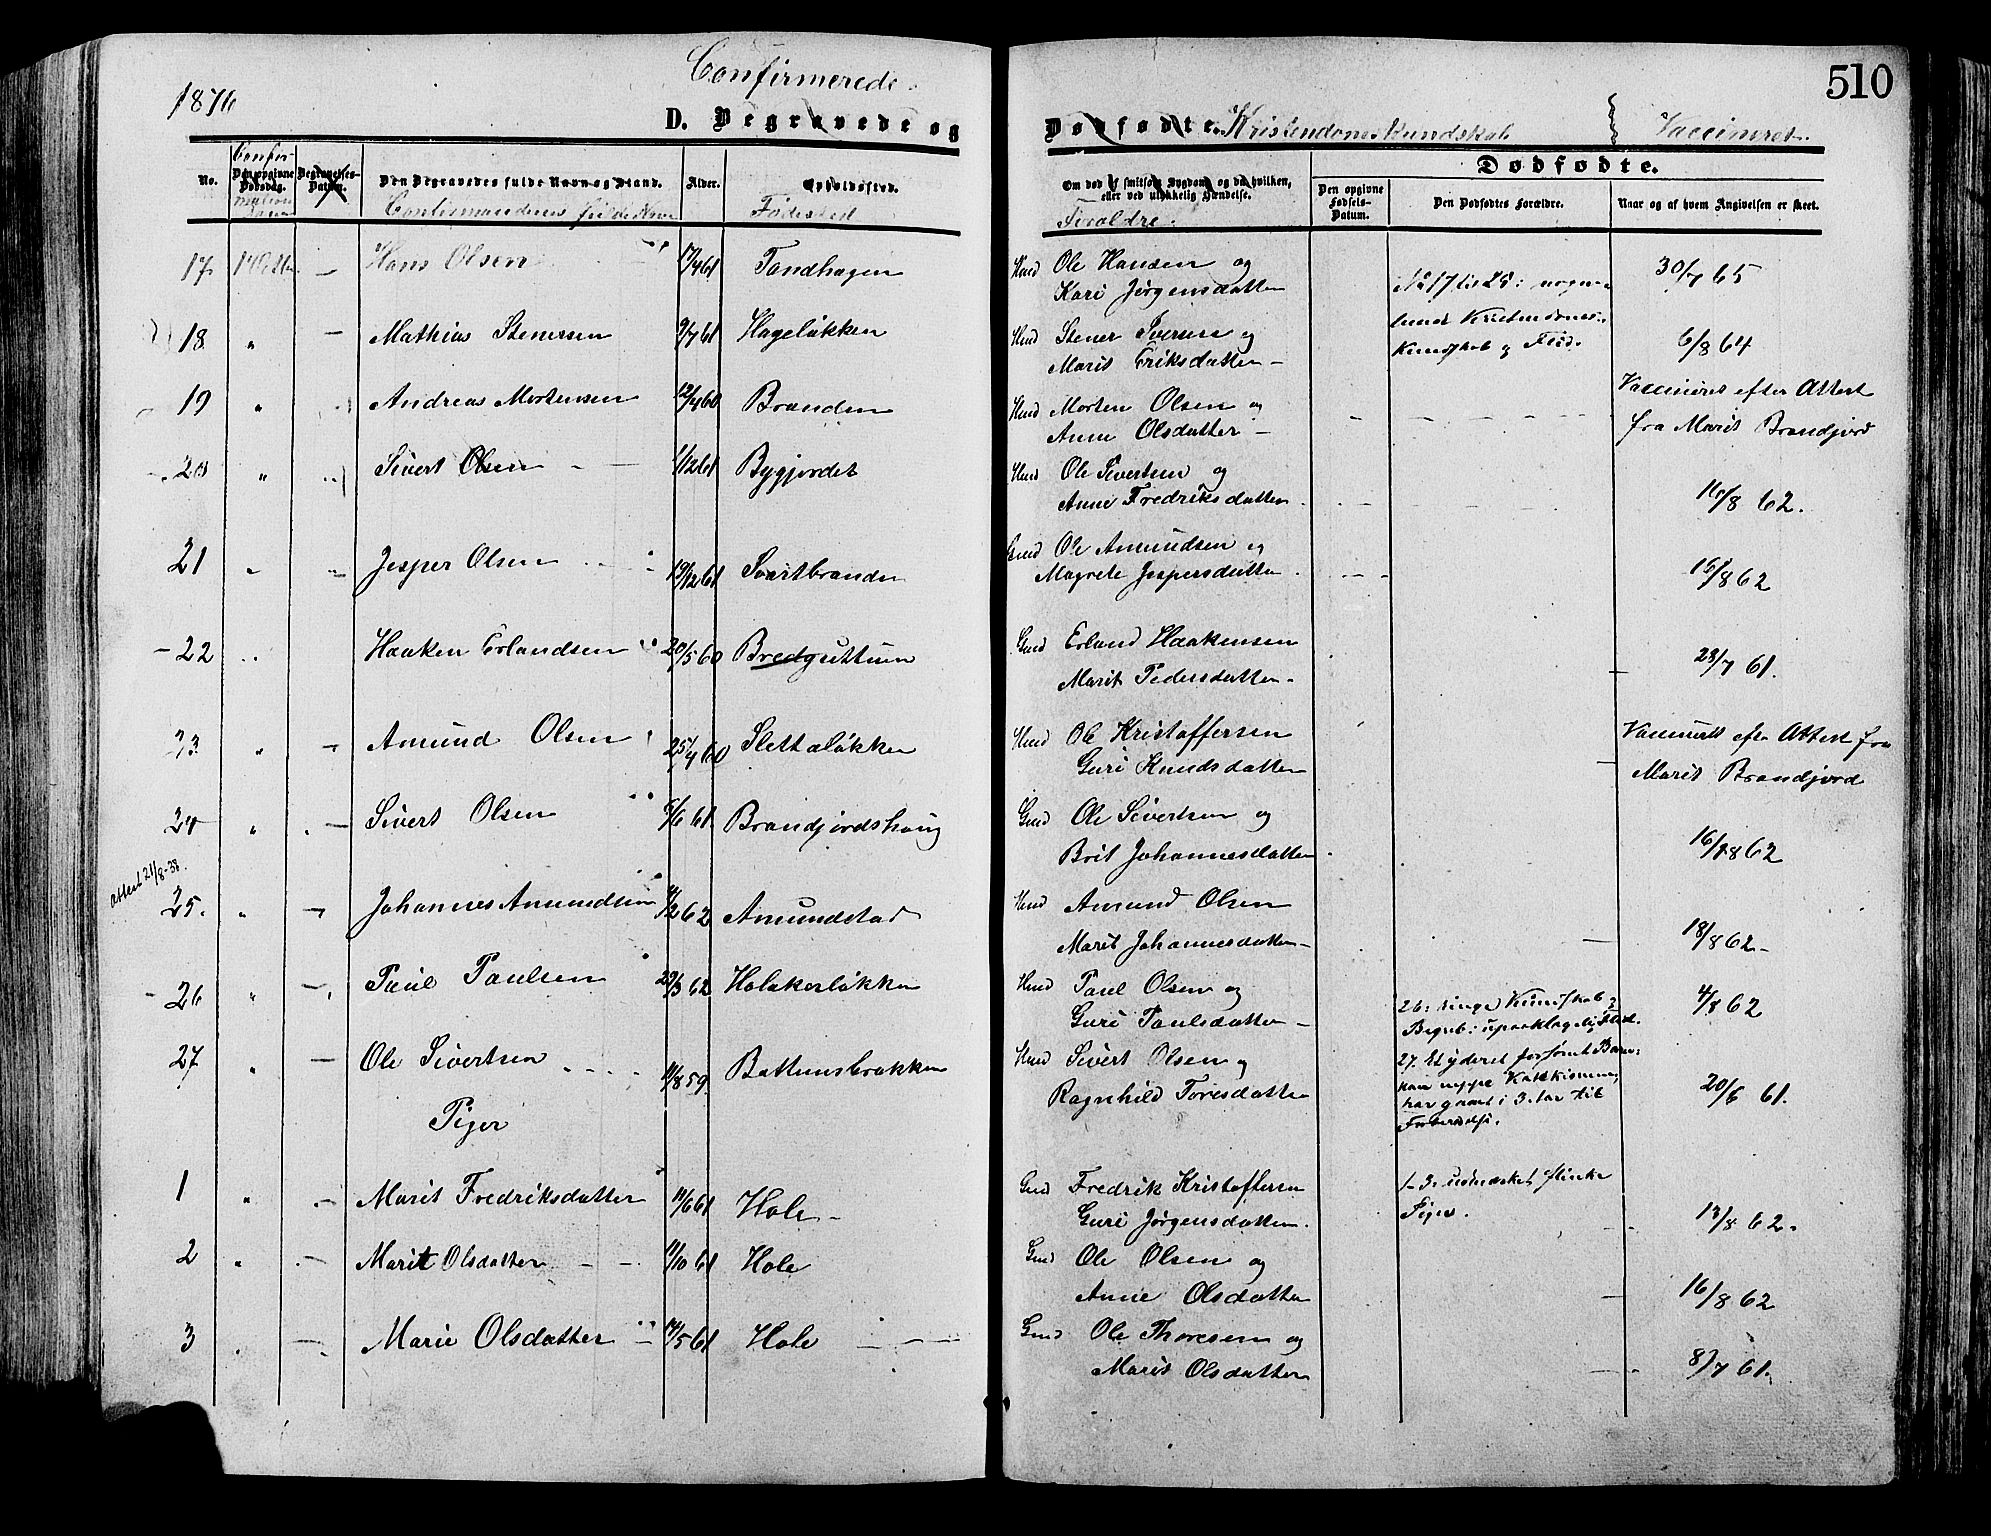 1876
Confirmerede.
510
D. Begravede og
Dødfødte. Kristendomskundskab
Vaccineret.
No.
Confirmationsdatum
Den opgivne Dødsdag.
Begravelses-Datum.
Den Begravedes fulde Navn og Stand.
Alder.
Opholdssted.
Confirmandens fulde Navn
Fødested
Om død af smitsom Sygdom og da hvilken,
eller ved ulykkelig Hændelse.
Forældre.
Dødfødte.
Den opgivne Fødsels-Datum.
Den Dødfødtes Forældre.
Naar og af hvem Angivelsen er skeet.
17 Hans Olsen 17/4 61 Tandhagen Hmd Ole Hansen og 30/7 65
Kari Jørgensdatter
No 17 til 25: nogen-
lunde Kristendoms-
Kundskab og Flid.
18 " Mathias Stenersen 9/7 61 Hageløkken Hmd Stener Iversen og 6/8 64
Marit Eriksdatter
19 " Andreas Mortensen 12/4 60 Branden Hmd Morten Olsen og Vaccineret efter Attest
Anne Olsdatter fra Marit Brandjord
20 " Sivert Olsen 1/12 61 Bygjordet Hmd Ole Sivertsen og
Anne Fredriksdatter 16/8 62.
21 " Jesper Olsen 19/12 61 Svartbranden Gmd Ole Amundsen og
Magrete Jespersdatter 15/8 62
22 " Haaken Erlandsen 20/5 60 Bredguttuen Gmd Erland Haakensen
Marit Pedersdatter 28/7 61.
23 " Amund Olsen 25/4 60 Slettaløkken Hmd Ole Kristoffersen Vaccineret efter Attest fra
Guri Knudsdatter Marit Brandjord
24 " Sivert Olsen 5/6 61 Brandjordshaug Gmd Ole Sivertsen og
Brit Johannesdatter 16/8 62
Attest 21/8-38.
25. " Johannes Amundsen /2 62 Amundstad Hmd Amund Olsen
Marit Johannesdatter 18/8 62
26 " Paul Paulsen 29/3 62 Holakerløkken Hmd Paul Olsen og 4/8 62
Guri Paulsdatter
26: ringe Kundskab og
Begreb: upaaklagelig Flid.
27 " Ole Sivertsen 11/8 59 Hmd Sivert Olsen og
Ragnhild Toresdatter 20/6 61.
27. Et yderst forsømt Barn:
kan neppe Katekismen,
har gaaet i 3. Aar til
Forberedelse.
Piger
1 " Marit Fredriksdatter 11/6 61 Hole Gmd Fredrik Kristoffersen
Guri Jørgensdatter 13/8 62.
1-3: udmærket flinke
Piger.
2 " Marit Olsdatter 11/10 61 Hole Gmd Ole Olsen og
Anne Olsdatter 16/8 62
3 " Marie Olsdatter 14/5 61 Hole Gmd Ole Thoresen og
Marit Olsdatter 8/7 61.